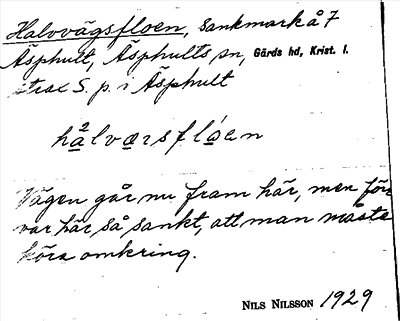 Halvvägsfloen, sankmark å 7
Äsphult, Äsphults sn, Gärds hd, Krist. l.
strax S. p. i Äsphult
halvœrsfloen
Vägen går nu fram här, men förr
var här så sankt, att man måste
köra omkring.
NILS NILSSON 1929